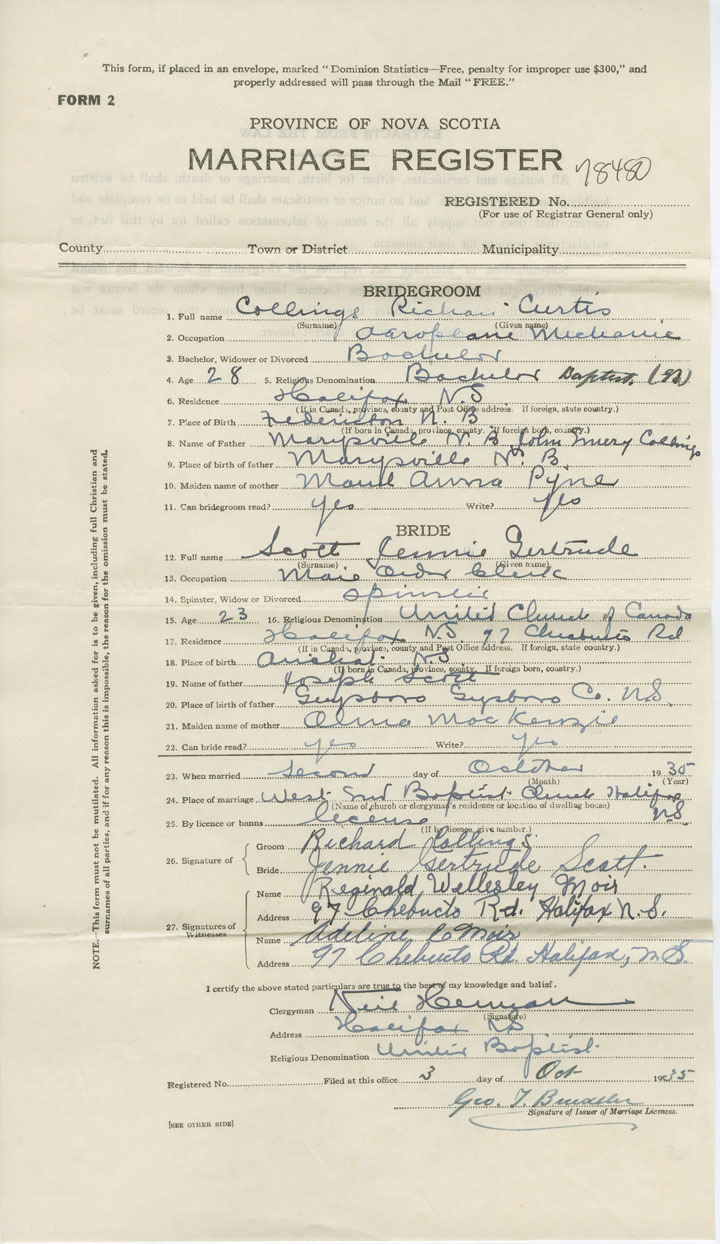 This form, if placed in an envelope, marked "Dominion Statistics—Free, penalty for improper use $300," and
properly addressed will pass through the Mail "FREE."
FORM 2
PROVINCE OF NOVA SCOTIA
MARRIAGE REGISTER 78480
REGISTERED No.
(For use of Registrar General only)
County Town or District Municipality
BRIDEGROOM
1. Full name Collings Richard Curtis
(Surname) (Given name)
2. Occupation Aeroplane Mechanic
3. Bachelor, Widower or Divorced Bachelor
4. Age 28 5. Religious Denomination Bachelor Baptist
6. Residence Halifax N.S
(If in Canada, province, county and Post Office address. If foreign, state country.)
7. Place of Birth Fredericton N. B
(If born in Canada, province, county. If foreign born, country.)
8. Name of Father Marysville N. B. John Emery Collings
9. Place of birth of father Marysville N. B.
10. Maiden name of mother Maud Anna Pyne
11. Can bridegroom read? yes Write? yes
BRIDE
12. Full name Scott Jennie Gertrude
(Surname) (Given name)
13. Occupation Mail Order Clerk
14. Spinster, Widow or Divorced Spinster
15. Age 23 16. Religious Denomination United Church of Canada
17. Residence Halifax N.S 97 Chebucto Rd
(If in Canada, province, county and Post Office address. If foreign, state country.)
18. Place of birth Arichat N.S.
(If born in Canada, province, county. If foreign born, country.)
19. Name of father Joseph Scott
20. Place of birth of father Guysboro Guysboro Co. N.S.
21. Maiden name of mother Alma MacKenzie
22. Can bride read? yes Write? yes
23. When married Second day of October 1935
(Month) (Year)
24. Place of marriage West End Baptist Church Halifax N.S
(Name of church or clergyman's residence or location of dwelling house)
25. By licence or banns license
(If by licence, give number.)
26. Signature of
Groom Richard Collings.
Bride Jennie Gertrude Scott.
27. Signatures of Witnesses
Name Reginald Wellesley Moir
Address 97 Chebucto Rd. Halifax N.S.
Name Adeline C Moir
Address 97 Chebucto Rd Halifax, N.S.
I certify the above stated particulars are true to the best of my knowledge and belief.
Clergyman Neil Herman
(Signature)
Address Halifax NS
Religious Denomination United Baptist
Registered No. Filed at this office 3 day of Oct 1935
Geo. T.
Signature of Issuer of Marriage Licences.
[SEE OTHER SIDE]
NOTE.—This form must not be mutilated. All information asked for is to be given, including full Christian and
surnames of all parties, and if for any reason this is impossible, the reason for the omission must be stated.